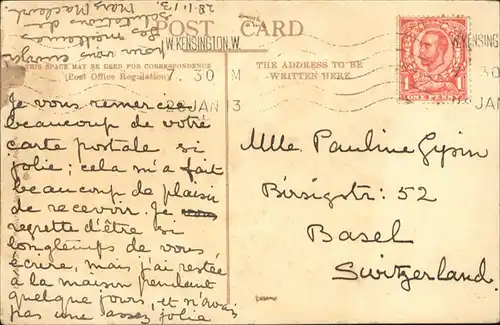 POST CARD
W.KENSINGTON.W.
7.30 M
28 JAN 13
THIS SPACE MAY BE USED FOR CORRESPONDENCE
(Post Office Regulation)
THE ADDRESS TO BE
WRITTEN HERE.
KENSINGTON
7.30
JAN
1 ONE PENNY 1
28.1.13
pour vous envoyer
les meilleures
salutations de
Je vous remercie
beaucoup de votre
carte postale si
jolie; cela m'a fait
beaucoup de plaisir
de recevoir. Je
regrette d'être si
longtemps de vous
écrire, mais j'ai restée
à la maison pendant
quelque jours, et n'avais
pas une assez jolie
Mlle. Pauline Gysin
Birsigstr: 52
Basel
Switzerland.